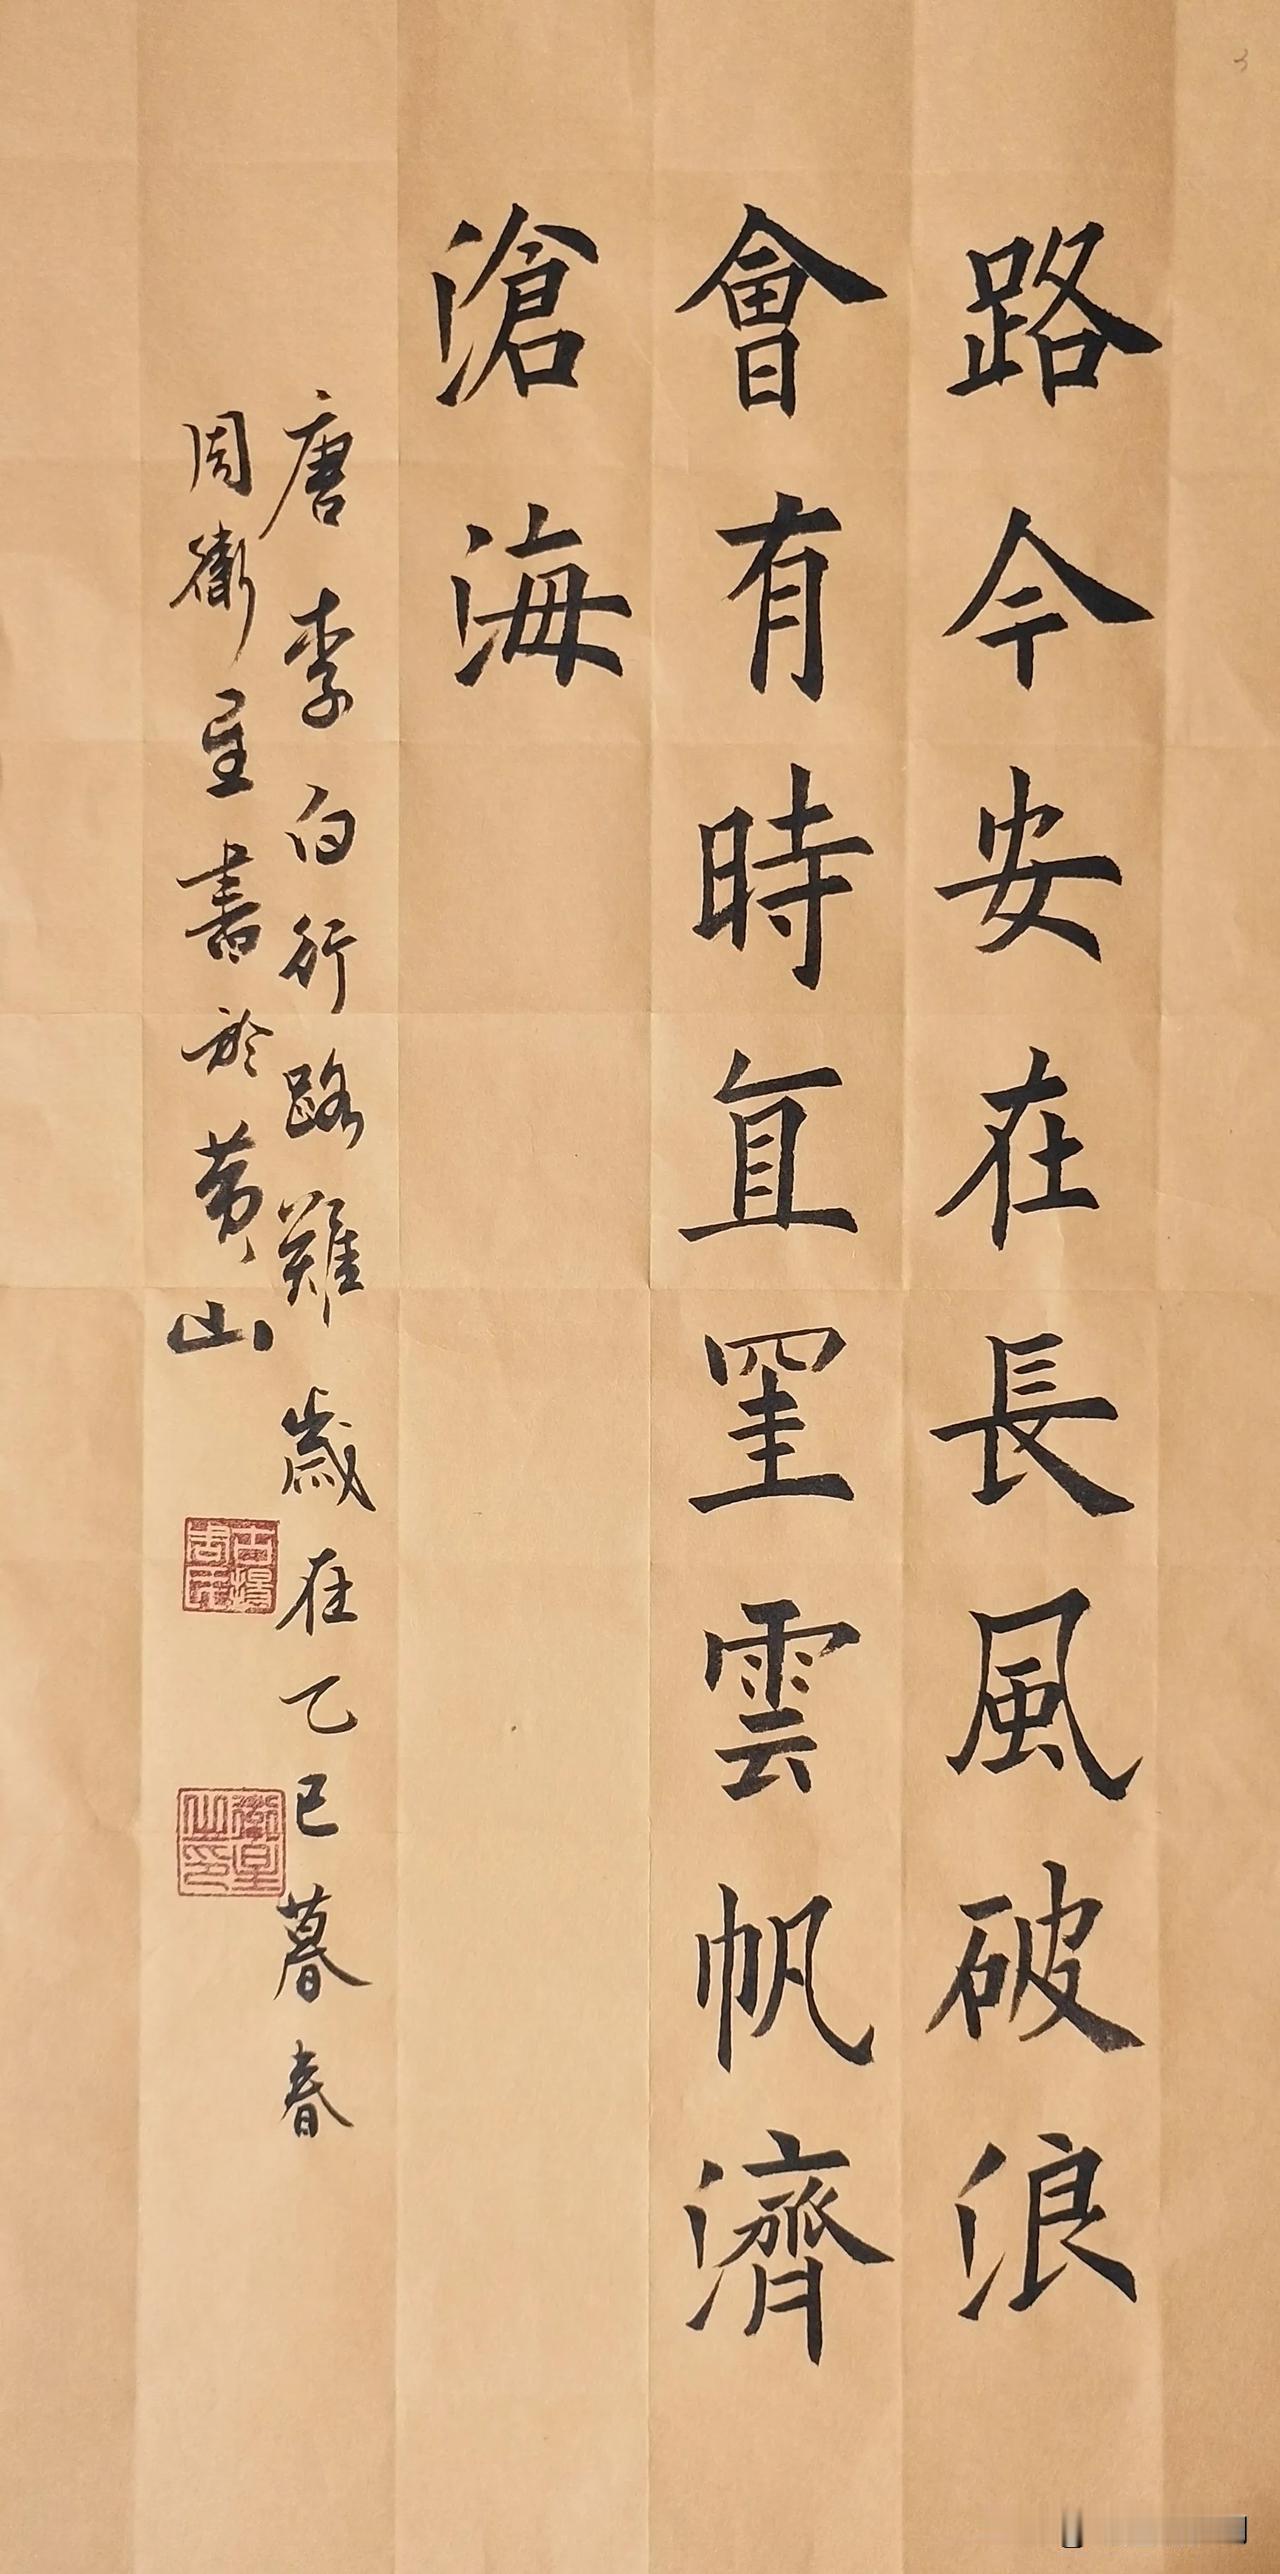 路今安在長風破浪
會有時直罣雲帆濟
滄海
唐李白行路難歲在乙巳暮春
周衛星書於黄山